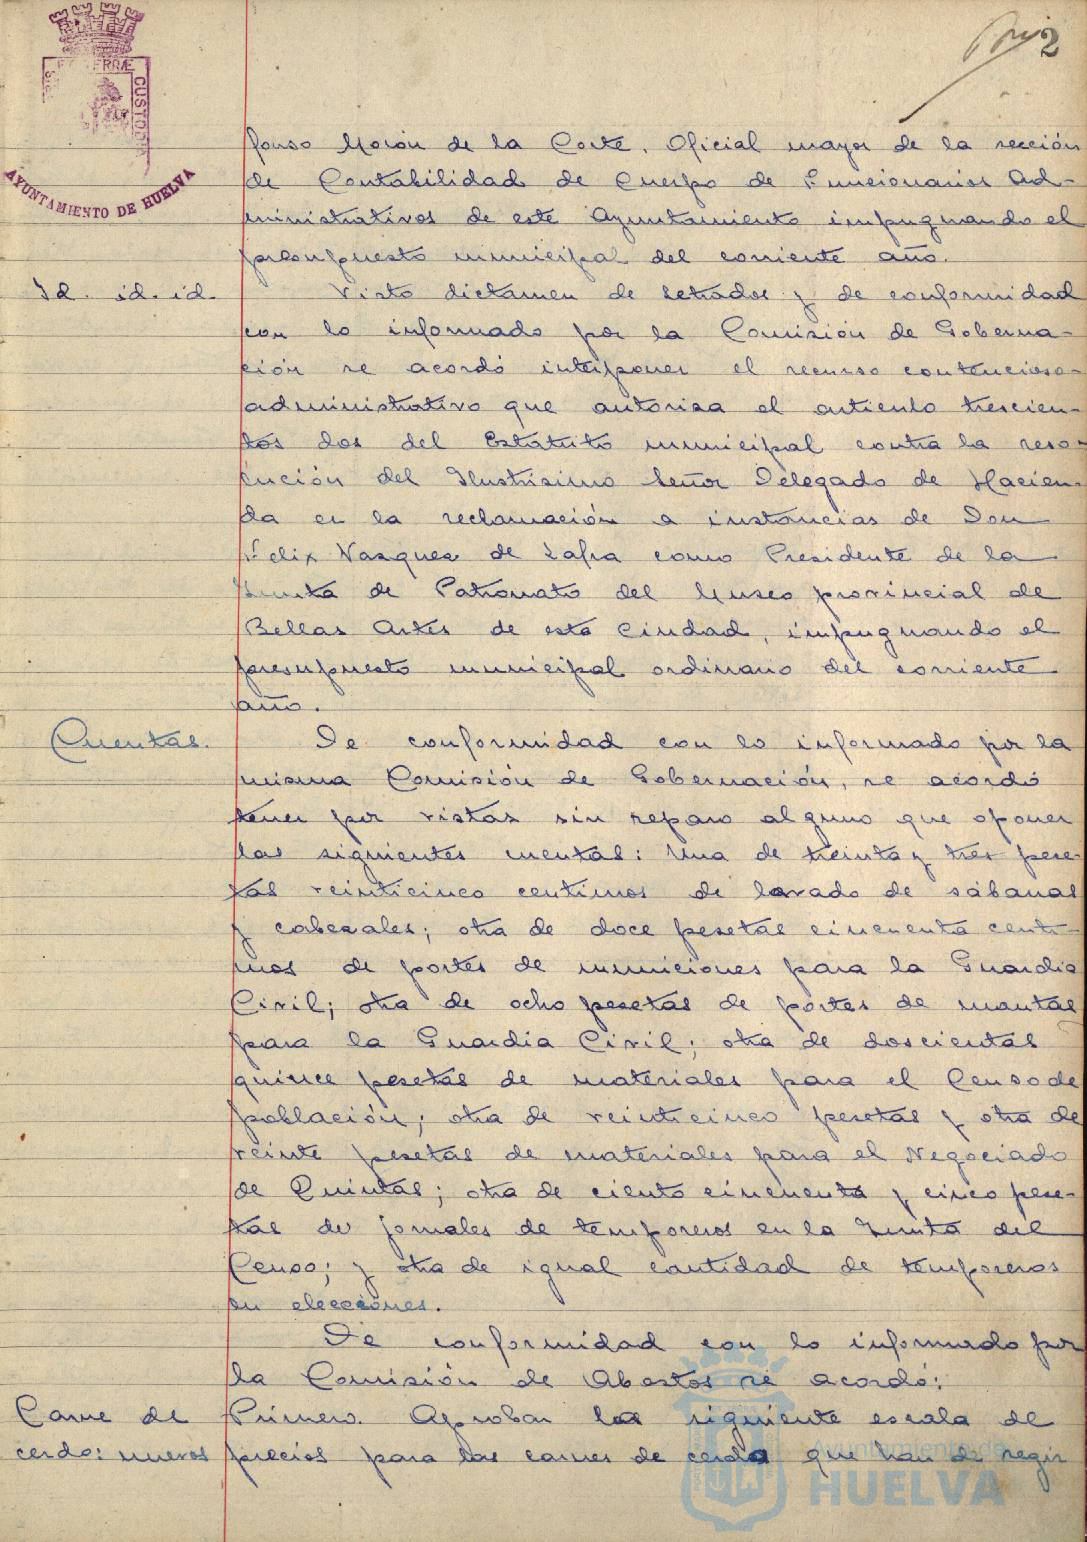 2
PORTUS TERRÆ CUSTODIA
AYUNTAMIENTO DE HUELVA
fonso Morón de la Corte, Oficial mayor de la sección
de Contabilidad de Cuerpo de Funcionarios Ad-
ministrativos de este Ayuntamiento impugnando el
presupuesto municipal del corriente año.
Id. id. id. Visto dictamen de Letrados y de conformidad
con lo informado por la Comisión de Goberna-
ción se acordó interponer el recurso contencioso-
administrativo que autoriza el artículo trescien-
tos dos del Estatuto municipal contra la reso-
lución del Ilustrísimo Señor Delegado de Hacien-
da en la reclamación a instancias de Don
Felix Vazquez de Zafra como Presidente de la
Junta de Patronato del Museo provincial de
Bellas Artes de esta Ciudad, impugnando el
presupuesto municipal ordinario del corriente
año.
Cuentas. De conformidad con lo informado por la
misma Comisión de Gobernación, se acordó
tener por vistas sin reparo alguno que oponer
las siguientes cuentas: Una de treinta y tres pese-
tas veinticinco centimos de lavado de sábanas
y cabezales; otra de doce pesetas cincuenta centi-
mos de portes de municiones para la Guardia
Civil; otra de ocho pesetas de portes de mantas
para la Guardia Civil; otra de doscientas
quince pesetas de materiales para el Censo de
población; otra de veinticinco pesetas y otra de
veinte pesetas de materiales para el Negociado
de Quintas; otra de ciento cincuenta y cinco pese-
tas de jornales de temporeros en la Junta del
Censo; y otra de igual cantidad de temporeros
en elecciones.
De conformidad con lo informado por
la Comisión de Abastos se acordó:
Carne de Primero. Aprobar la siguiente escala de
cerdo: nuevos precios para las carnes de cerdo que han de regir
Ayuntamiento de
HUELVA